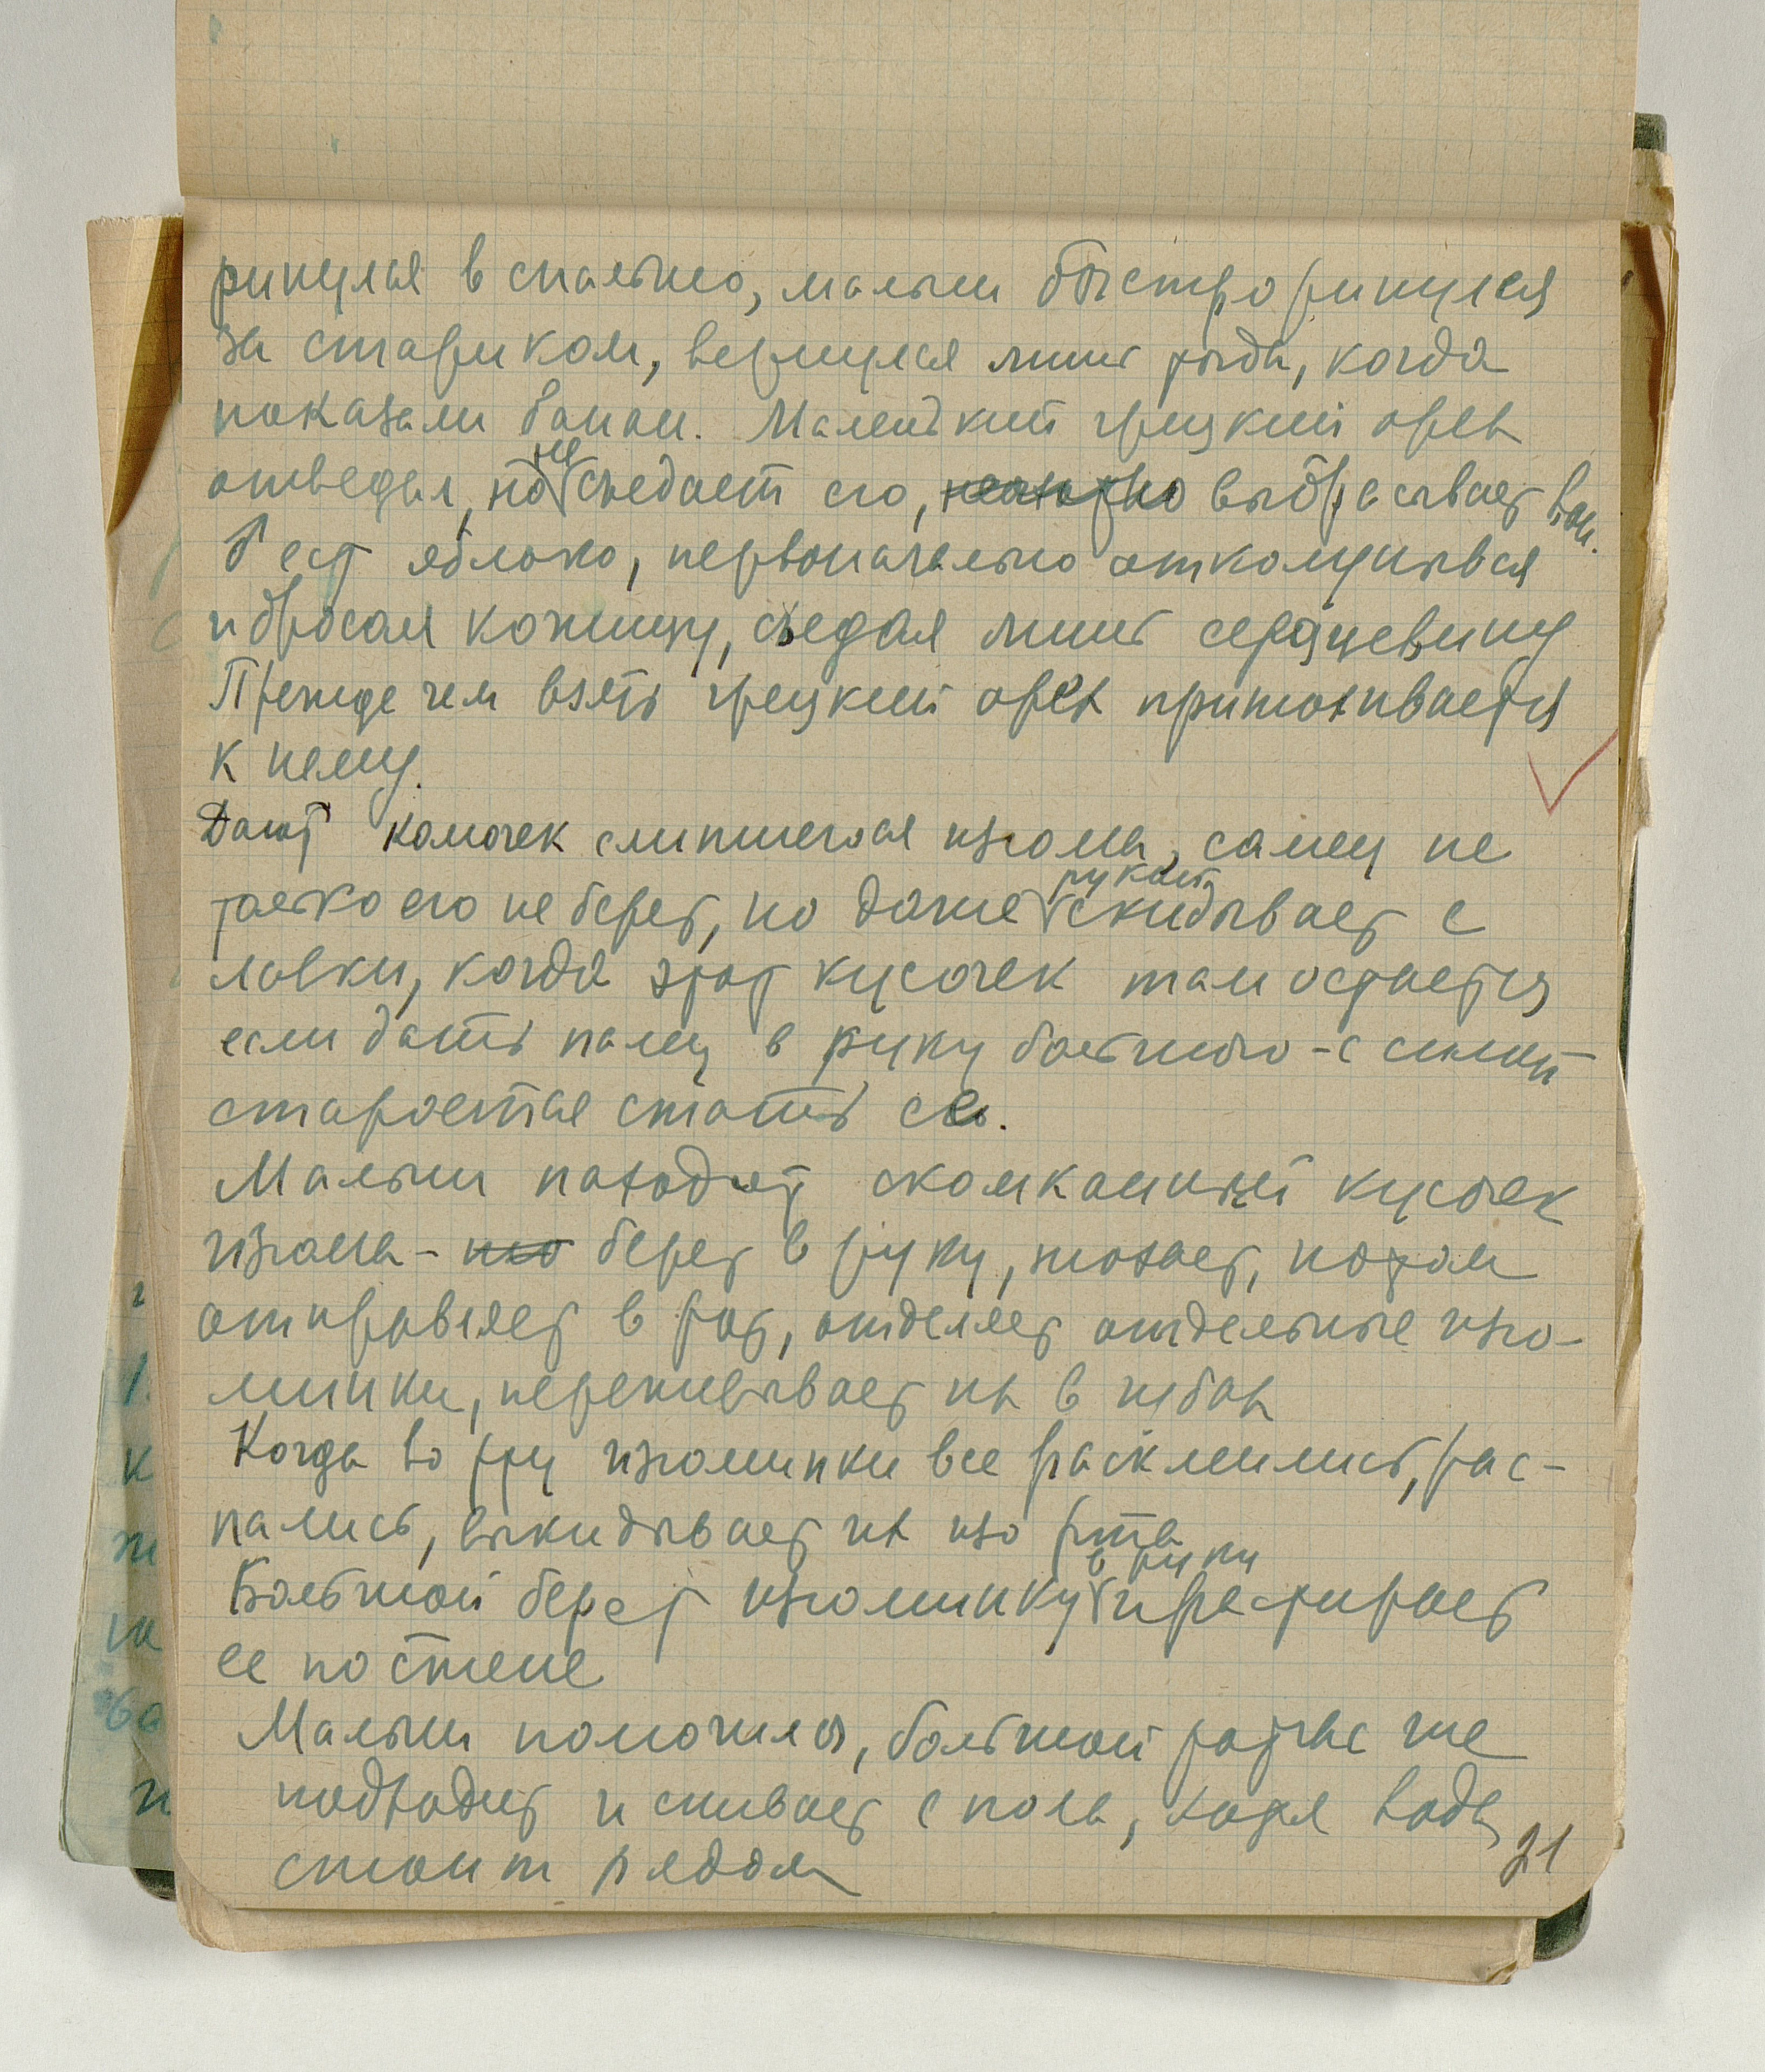 ринулся в спальню, малыш быстро ринулся
за стариком, вернулся лишь тогда, когда
показали банан. Маленький грецкий орех
отведал, но не съедает его, выбрасывает вон.
Б ест яблоко, первоначально откомупывая
и бросая кожицу, съедая лишь сердцевину
Прежде чем взять грецкий орех принюхивается
к нему.
Дают комочек слипшегося изюма, самец не
только его не берет, но даже рукой скидывает с
лавки, когда этот кусочек там остается
если дать палец в руку большого - с силой
старается сжать его.
Малыш находит скомканный кусочек
изюма - берет в руку, нюхает, потом
отправляет в рот, отделяет отдельные изю-
минки, пережевывает их в губах
Когда во рту изюминки все расклеились, рас-
пались, выкидывает их изо рта
Большой берет изюминку в руки и растирает
ее по стене
Малыш помочился, большой тотчас же
подходит и слизывает с пола, хотя вода
стоит рядом
21